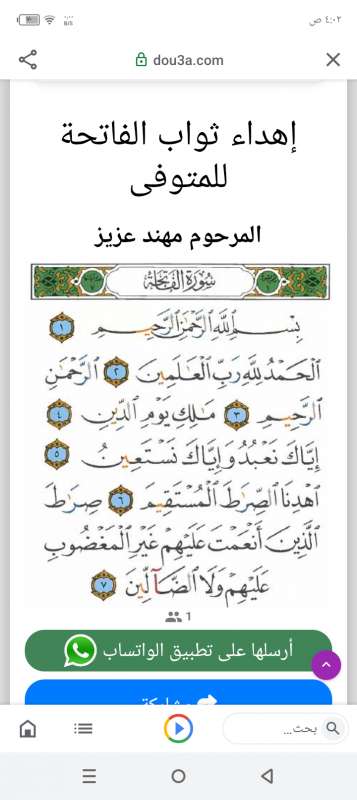 ٤:٠٢ ص
dou3a.com
إهداء ثواب الفاتحة
للمتوفى
المرحوم مهند عزيز
سُورَةُ الفَاتِحَةِ
بِسْمِ اللَّهِ الرَّحْمَٰنِ الرَّحِيمِ ١
الْحَمْدُ لِلَّهِ رَبِّ الْعَالَمِينَ ٢ الرَّحْمَٰنِ
الرَّحِيمِ ٣ مَالِكِ يَوْمِ الدِّينِ ٤
إِيَّاكَ نَعْبُدُ وَإِيَّاكَ نَسْتَعِينُ ٥
اهْدِنَا الصِّرَاطَ الْمُسْتَقِيمَ ٦ صِرَاطَ
الَّذِينَ أَنْعَمْتَ عَلَيْهِمْ غَيْرِ الْمَغْضُوبِ
عَلَيْهِمْ وَلَا الضَّالِّينَ ٧
1
أرسلها على تطبيق الواتساب
مشاركة
بحث...